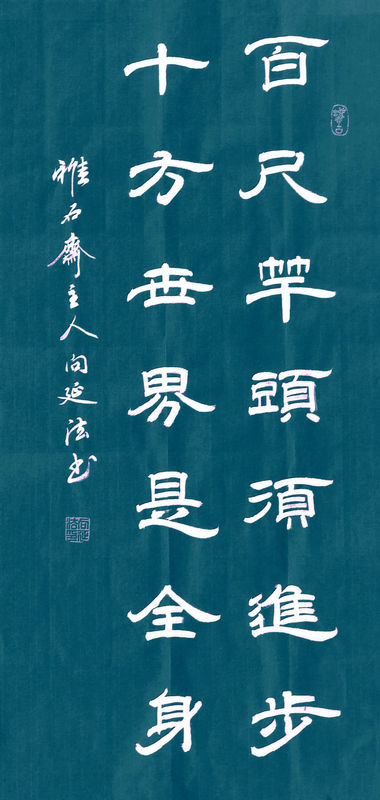 百尺竿頭須進步
十方世界是全身
雅石齋主人向延法书